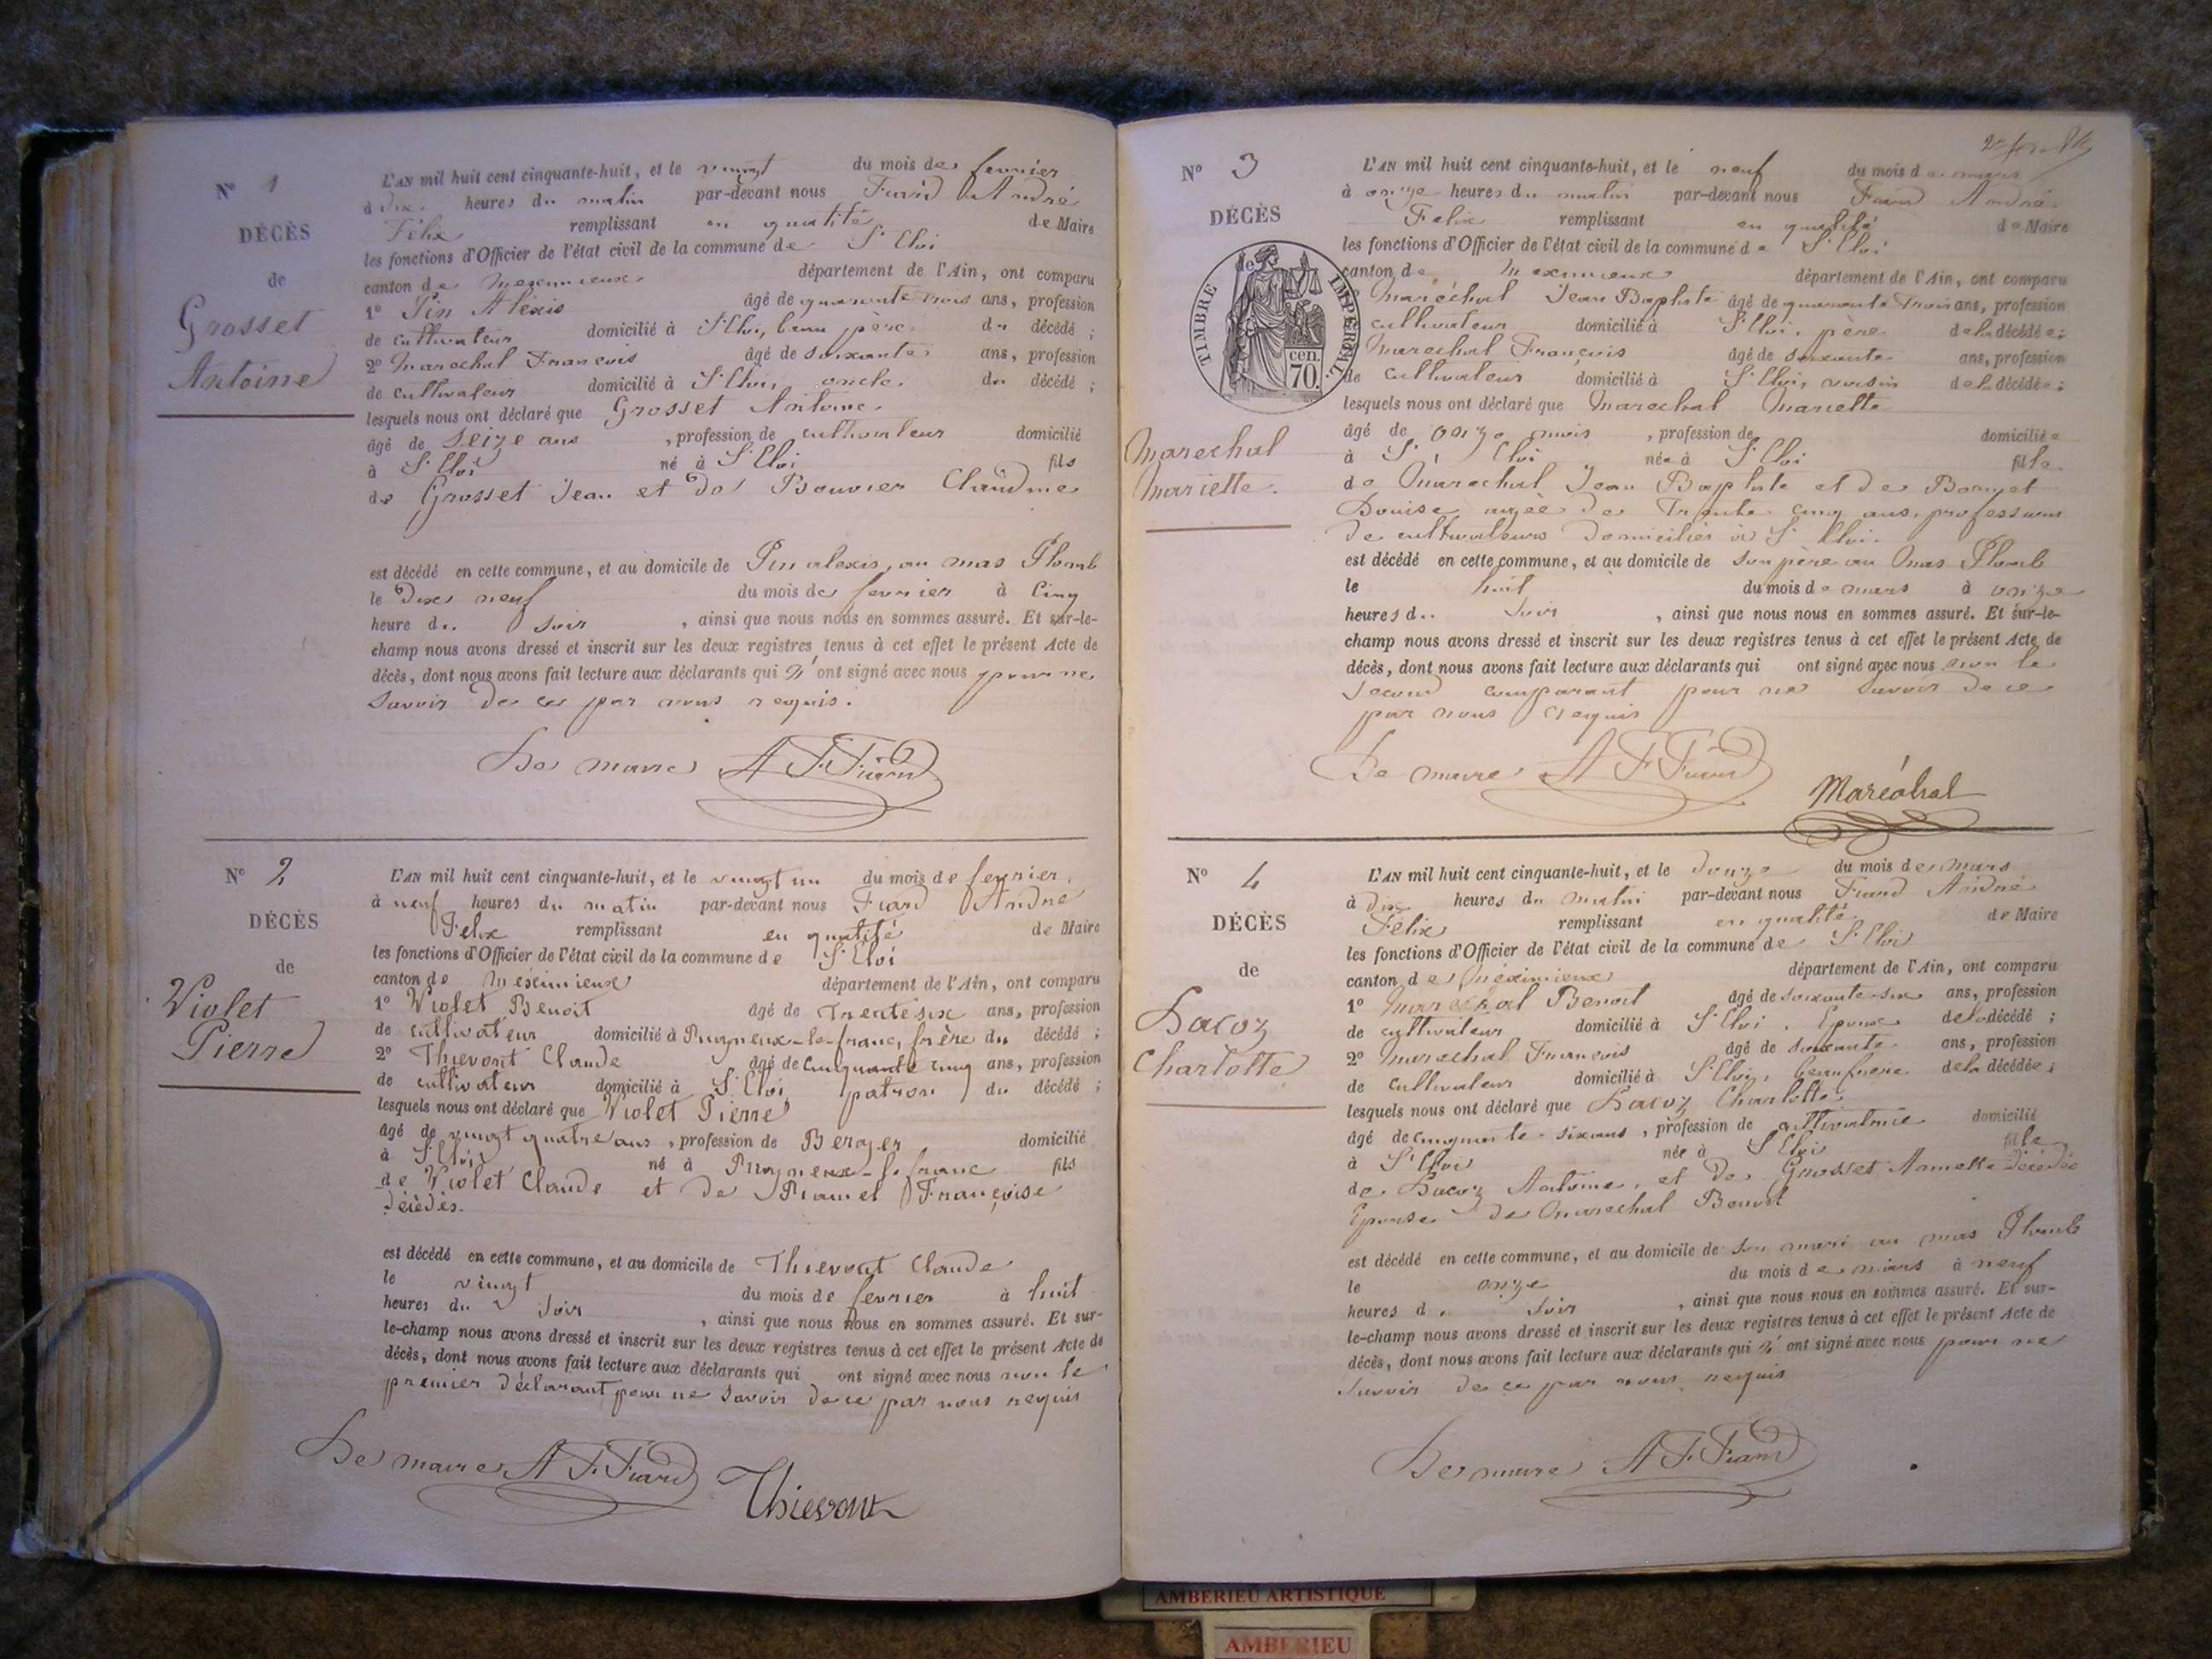 N° 1
DÉCÈS
de
Grosset
Antoine
L'AN mil huit cent cinquante-huit, et le vingt du mois de fevrier
à dix heures du matin par-devant nous Fiard André
Félix remplissant en qualité de Maire
les fonctions d'Officier de l'état civil de la commune de St Eloi
canton de Meximieux département de l'Ain, ont comparu
1° Pin Aléxis âgé de quarante trois ans, profession
de cultivateur domicilié à St Eloi, beau père du décédé ;
2° Marechal François âgé de soixante ans, profession
de cultivateur domicilié à St Eloi, oncle du décédé ;
lesquels nous ont déclaré que Grosset Antoine
âgé de seize ans , profession de cultivateur domicilié
à St Eloi né à St Eloi fils
de Grosset Jean et de Bouvier Claudine
est décédé en cette commune, et au domicile de Pin alexis, au mas Plomb
le dix neuf du mois de fevrier à Cinq
heure du soir , ainsi que nous nous en sommes assuré. Et sur-le-
champ nous avons dressé et inscrit sur les deux registres tenus à cet effet le présent Acte de
décès, dont nous avons fait lecture aux déclarants qui n'ont signé avec nous pour ne
savoir de ce par nous requis.
Le maire A F Fiard
N° 2
DÉCÈS
de
Violet
Pierre
L'AN mil huit cent cinquante-huit, et le vingt un du mois de fevrier,
à neuf heures du matin par-devant nous Fiard André
Felix remplissant en qualité de Maire
les fonctions d'Officier de l'état civil de la commune de St Eloi
canton de Méximieux département de l'Ain, ont comparu
1° Violet Benoit âgé de Trente six ans, profession
de cultivateur domicilié à Rigneux-le-franc, frère du décédé ;
2° Thievont Claude âgé de cinquante cinq ans, profession
de cultivateur domicilié à St Eloi, patron du décédé ;
lesquels nous ont déclaré que Violet Pierre
âgé de vingt quatre ans , profession de Berger domicilié
à St Eloi né à Rigneux-le-franc fils
de Violet Claude et de Françoise
décédés.
est décédé en cette commune, et au domicile de Thievont Claude
le vingt du mois de fevrier à huit
heures du soir , ainsi que nous nous en sommes assuré. Et sur-
le-champ nous avons dressé et inscrit sur les deux registres tenus à cet effet le présent Acte de
décès, dont nous avons fait lecture aux déclarants qui ont signé avec nous non le
premier déclarant pour ne savoir de ce par nous requis
Le maire A F Fiard Thievont
N° 3
DÉCÈS
TIMBRE IMPÉRIAL
70 cen.
Marechal
Mariette.
L'AN mil huit cent cinquante-huit, et le neuf du mois de mars
à onze heures du matin par-devant nous Fiard André
Felix remplissant en qualité de Maire
les fonctions d'Officier de l'état civil de la commune de St Eloi
canton de Meximieux département de l'Ain, ont comparu
Maréchal Jean Baptiste âgé de quarante trois ans, profession
cultivateur domicilié à St Eloi, père de la décédée ;
Marechal François âgé de soixante ans, profession
de cultivateur domicilié à St Eloi, voisin de la décédée ;
lesquels nous ont déclaré que Marechal Mariette
âgé de onze mois , profession de domiciliée
à St Eloi née à St Eloi fille
de Marechal Jean Baptiste et de
Louise agée de Trente cinq ans, profession
de cultivateurs domiciliés à St Eloi.
est décédé en cette commune, et au domicile de son père au mas Plomb
le huit du mois de mars à onze
heures du soir , ainsi que nous nous en sommes assuré. Et sur-le-
champ nous avons dressé et inscrit sur les deux registres tenus à cet effet le présent Acte de
décès, dont nous avons fait lecture aux déclarants qui ont signé avec nous non le
second comparant pour ne savoir de ce
par nous requis
Le maire A F Fiard
Maréchal
N° 4
DÉCÈS
de
Lacoz
Charlotte
L'AN mil huit cent cinquante-huit, et le douze du mois de mars
à dix heures du matin par-devant nous Fiard André
Félix remplissant en qualité de Maire
les fonctions d'Officier de l'état civil de la commune de St Eloi
canton de Méximieux département de l'Ain, ont comparu
1° Marechal Benoit âgé de soixante six ans, profession
de cultivateur domicilié à St Eloi, Epoux de la décédé ;
2° Marechal François âgé de soixante ans, profession
de cultivateur domicilié à St Eloi, beau frère de la décédée ;
lesquels nous ont déclaré que Lacoz Charlotte
âgé de cinquante-six ans , profession de cultivatrice domicilié
à St Eloi née à St Eloi fille
de Lacoz Antoine, et de Grosset Annette décédés
Epouse de Marechal Benoit
est décédé en cette commune, et au domicile de son mari au mas Plomb
le onze du mois de mars à neuf
heures du soir , ainsi que nous nous en sommes assuré. Et sur-
le-champ nous avons dressé et inscrit sur les deux registres tenus à cet effet le présent Acte de
décès, dont nous avons fait lecture aux déclarants qui n'ont signé avec nous pour ne
savoir de ce par nous requis
Le maire A F Fiard
AMBERIEU ARTISTIQUE
AMBERIEU